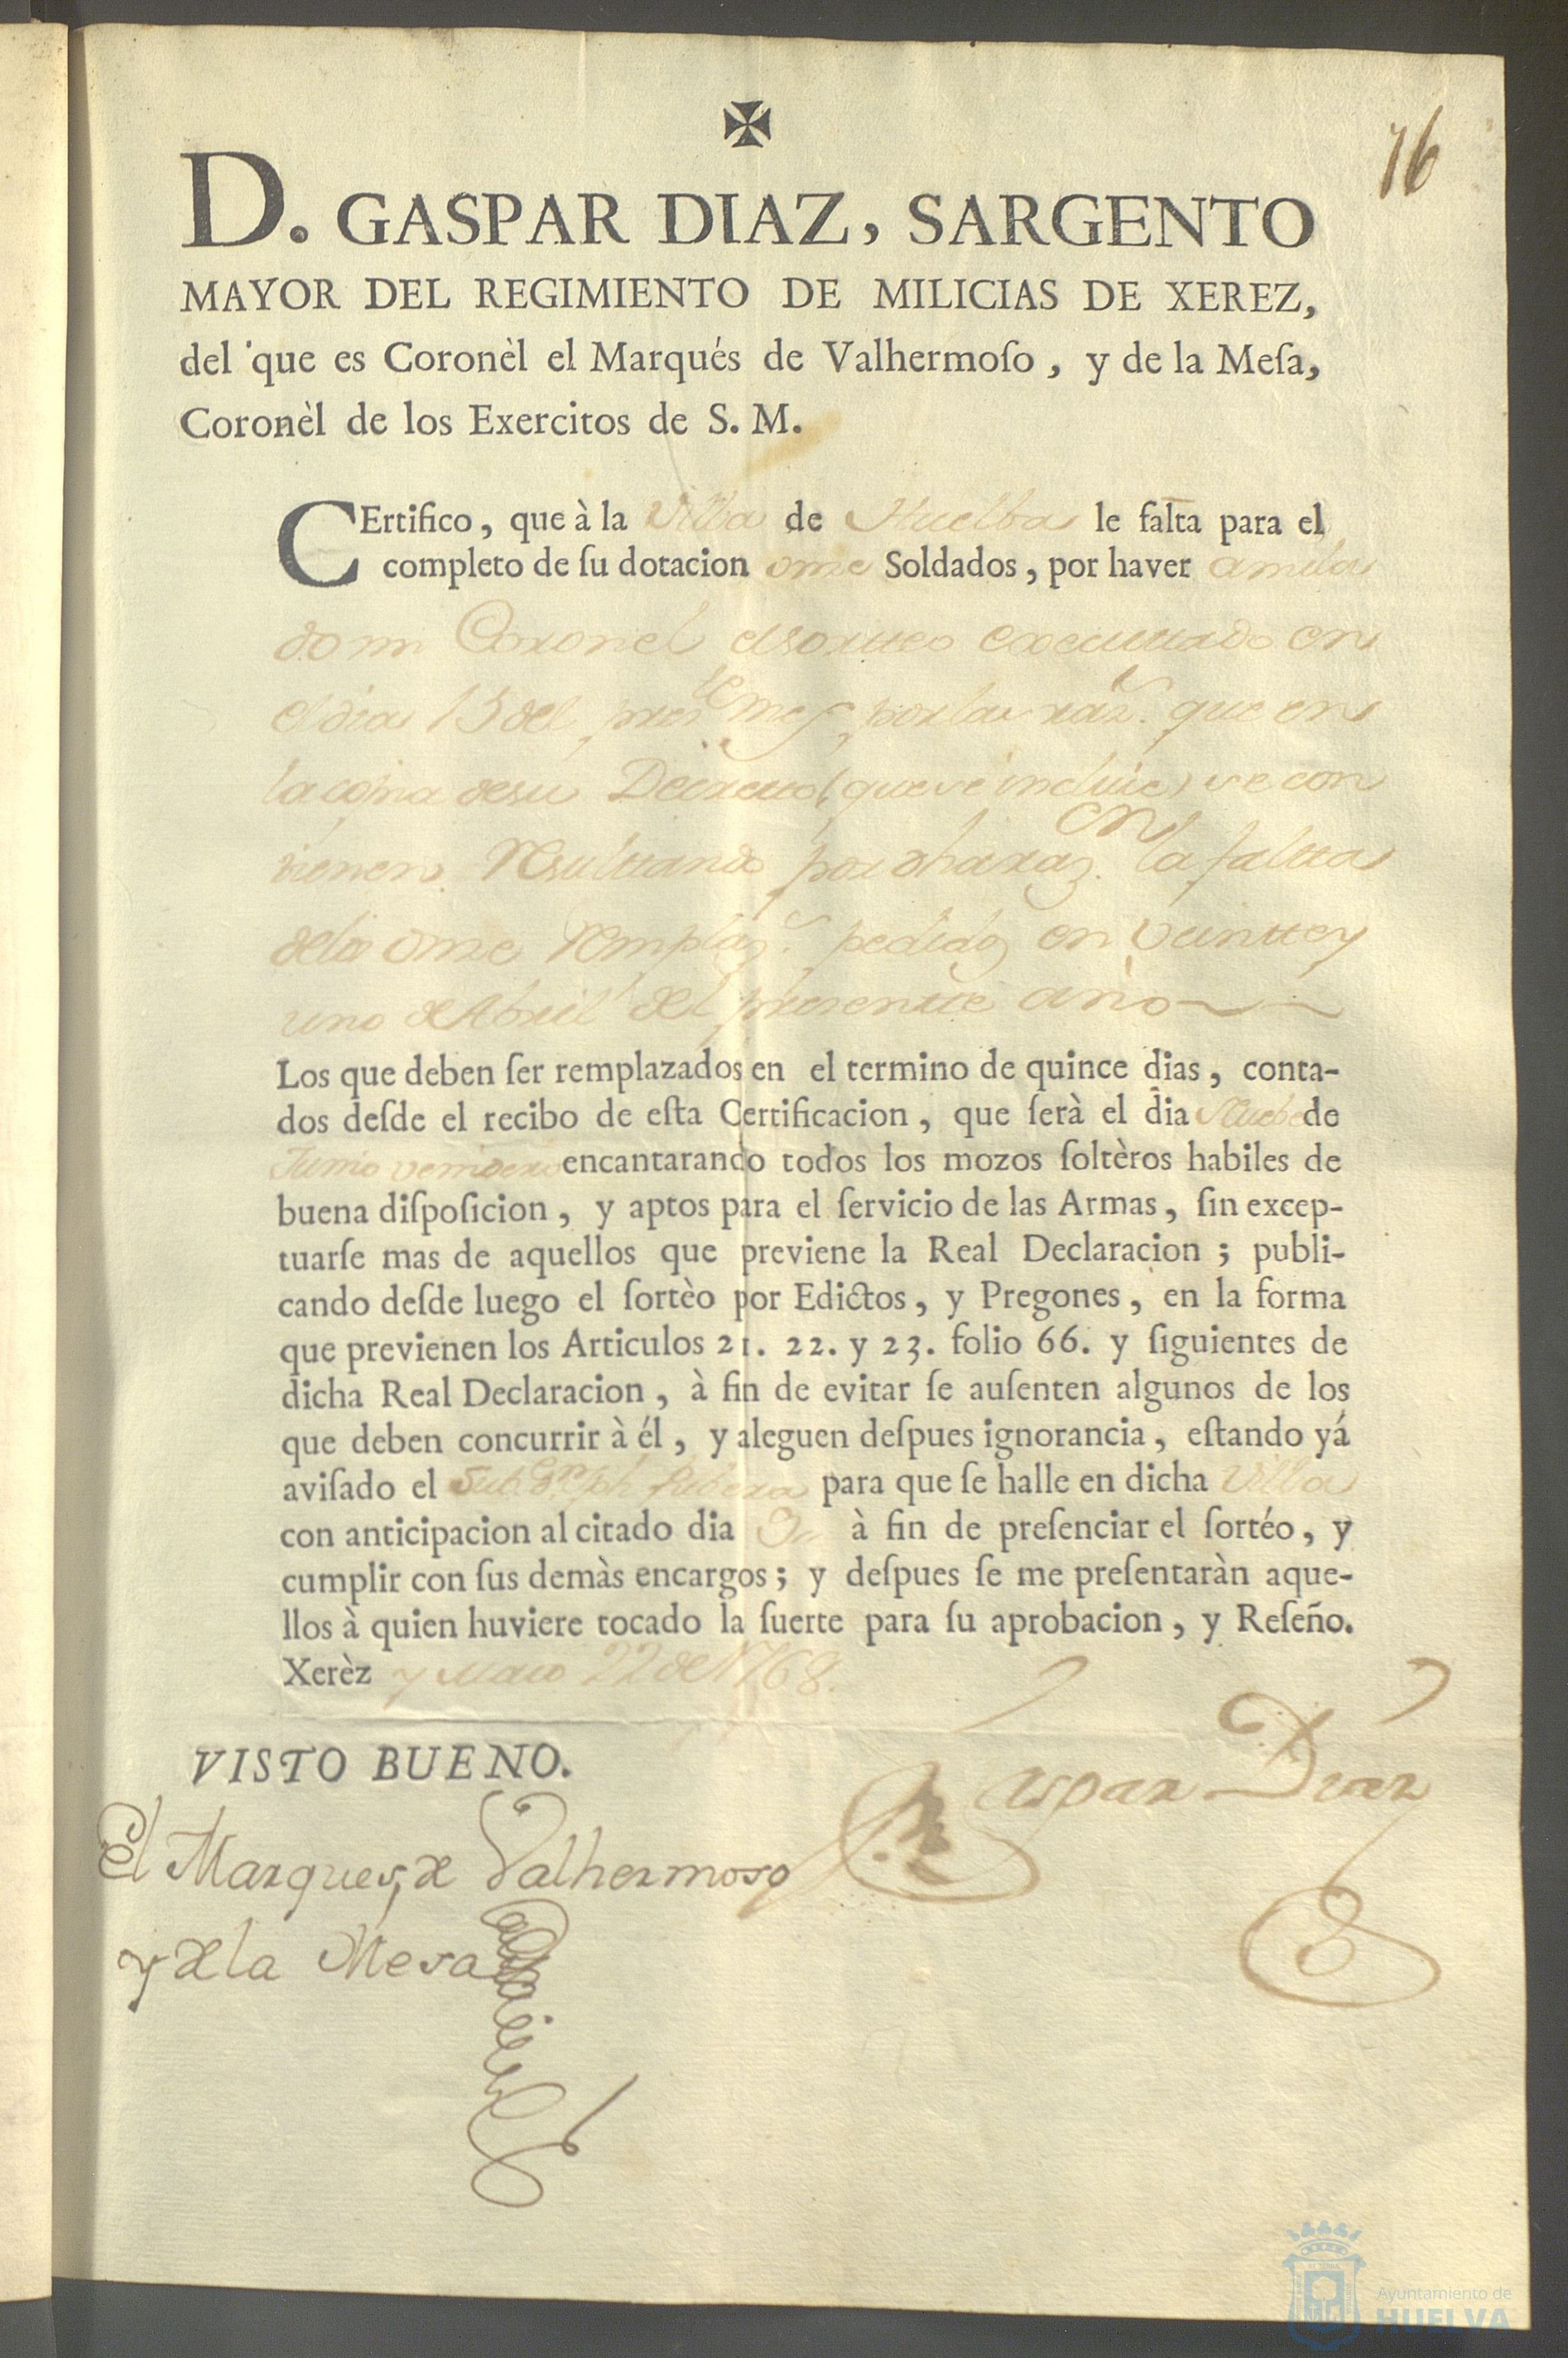 16
D. GASPAR DIAZ, SARGENTO
MAYOR DEL REGIMIENTO DE MILICIAS DE XEREZ,
del que es Coronèl el Marqués de Valhermoſo, y de la Meſa,
Coronèl de los Exercitos de S. M.
CErtifico, que à la Villa de Huelba le falta para el
completo de ſu dotacion onze Soldados, por haver anula
do mi Coronel el sorteo executtado en
el dia 15 del pres.te mes por las raz.s que en
la copia de su Decretto (que se incluie) se con
tienen. Resulttando por dha raz.n la falta
de los onze remplaz.s pedidos en Veintte y
uno de Abril del presentte año
Los que deben ſer remplazados en el termino de quince dias, conta-
dos deſde el recibo de eſta Certificacion, que ſerà el dia Nuebe de
Junio venidero encantarando todos los mozos ſoltèros habiles de
buena diſpoſicion, y aptos para el ſervicio de las Armas, ſin excep-
tuarſe mas de aquellos que previene la Real Declaracion; publi-
cando deſde luego el ſortèo por Edictos, y Pregones, en la forma
que previenen los Articulos 21. 22. y 23. folio 66. y ſiguientes de
dicha Real Declaracion, à fin de evitar ſe auſenten algunos de los
que deben concurrir à él, y aleguen deſpues ignorancia, eſtando yá
aviſado el Sub.te Dn Jph Ribera para que ſe halle en dicha Villa
con anticipacion al citado dia 9 à fin de preſenciar el ſortéo, y
cumplir con ſus demàs encargos; y deſpues ſe me preſentaràn aque-
llos à quien huviere tocado la ſuerte para ſu aprobacion, y Reſeño.
Xerèz y Maio 22 de 1768.
VISTO BUENO.
Gaspar Diaz
El Marques de Valhermoso
y de la Mesa
Ayuntamiento de
HUELVA